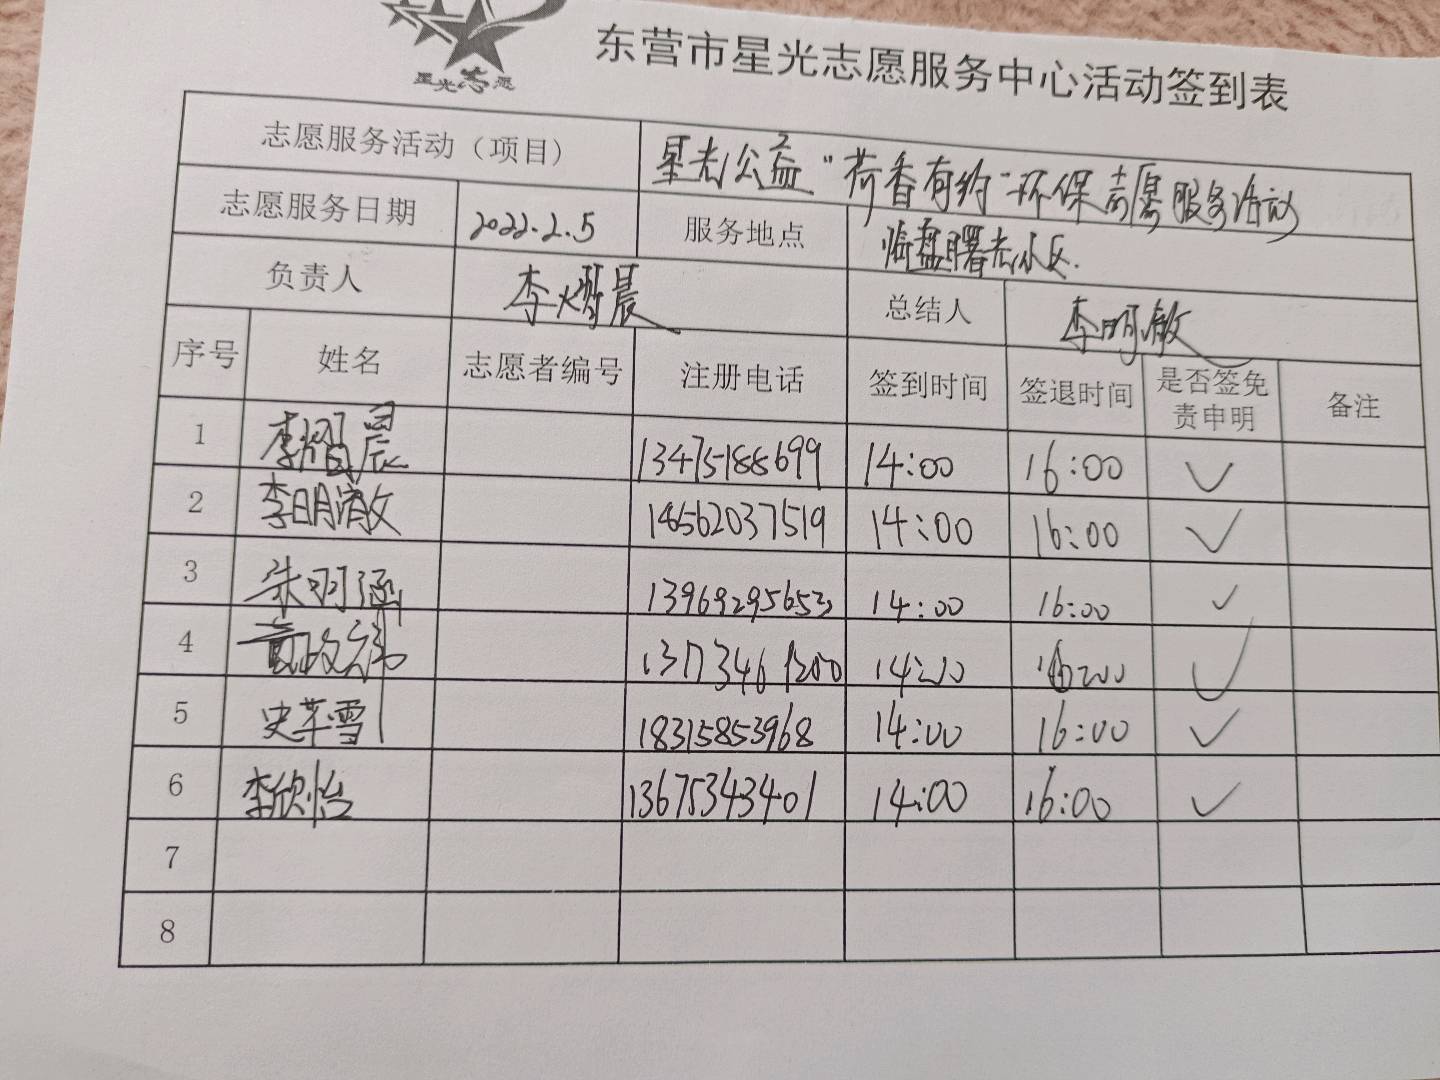 星光志愿
东营市星光志愿服务中心活动签到表
志愿服务活动（项目） 星光公益"荷香有约"环保志愿服务活动
志愿服务日期 2022.2.5 服务地点 临盘曙光小区.
负责人 李熠晨 总结人 李明敏
序号 姓名 志愿者编号 注册电话 签到时间 签退时间 是否签免责申明 备注
1 13475188699 14:00 16:00 ✓
2 18562037519 14:00 16:00 ✓
3 朱明涵 13969295653 14:00 16:00 ✓
4 14:00 16:00 ✓
5 史苹雪 18315853968 14:00 16:00 ✓
6 李欣怡 13675343401 14:00 16:00 ✓
7
8